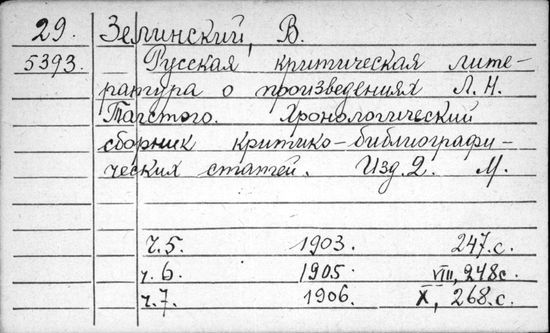 29. Зелинский, В.
5393. Русская критическая лите-
ратура о произведениях Л. Н.
Толстого. Хронологический
сборник критико-библиографи-
ческих статей. Изд. 2. М.
ч. 5. 1903. 247 с.
ч. 6. 1905. VIII, 248 с.
ч. 7. 1906. X, 268. с.